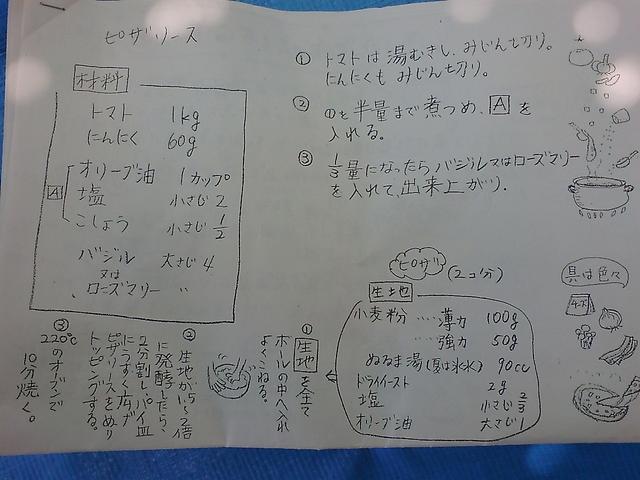 ピザソース
材料
トマト 1kg
にんにく 60g
A
オリーブ油 1カップ
塩 小さじ2
こしょう 小さじ1/2
バジル 大さじ4
又は
ローズマリー 〃
① トマトは湯むきし、みじん切り。
にんにくも みじん切り。
② ①を半量まで煮つめ、Aを
入れる。
③ 1/3量になったらバジル又はローズマリー
を入れて、出来上がり.
ピザ (2コ分)
生地
小麦粉 ‥‥薄力 100g
‥‥強力 50g
ぬるま湯(夏は氷水) 90cc
ドライイースト 2g
塩 小さじ2/3
オリーブ油 大さじ1
具は色々
チーズ
①
生地を全て
ボールの中へ入れ
よくこねる。
②
生地が1.5〜2倍
に発酵したら、
2分割しパイ皿
にうすく広げ
ピザソースをぬり
トッピングする。
③
220℃
のオーブンで
10分焼く。